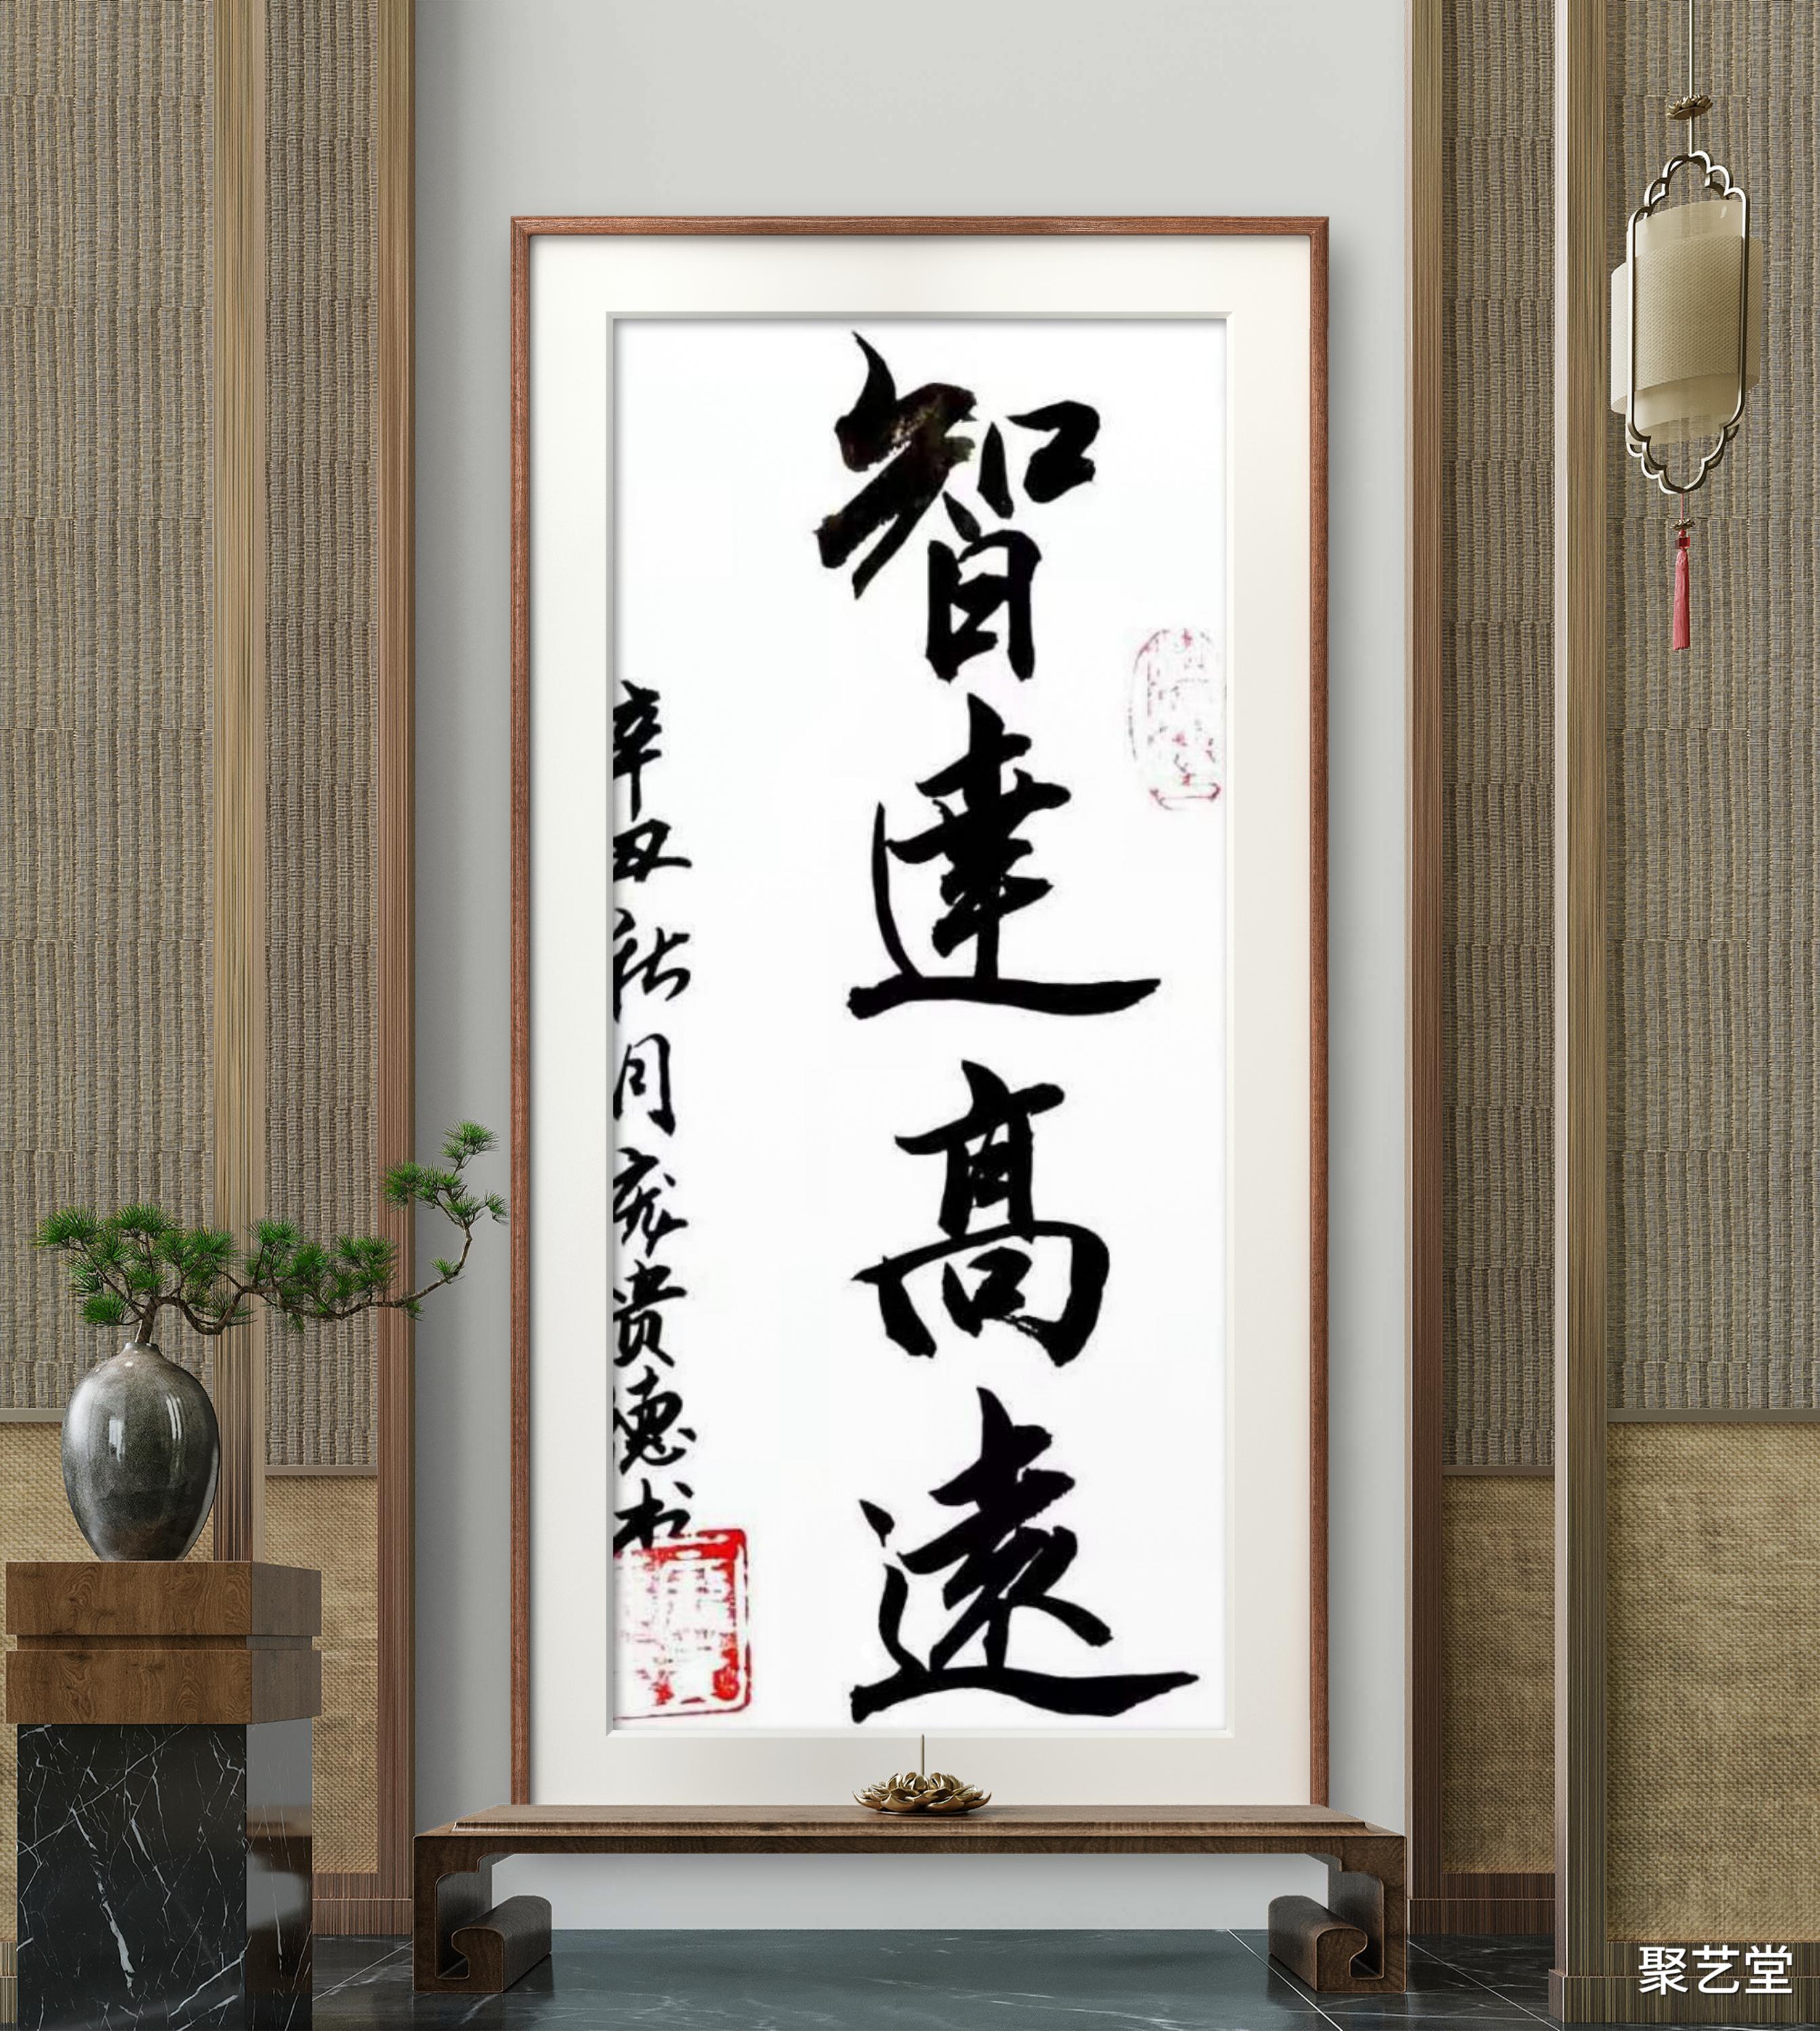 智達高遠
辛丑秋月龙贵德书
聚艺堂